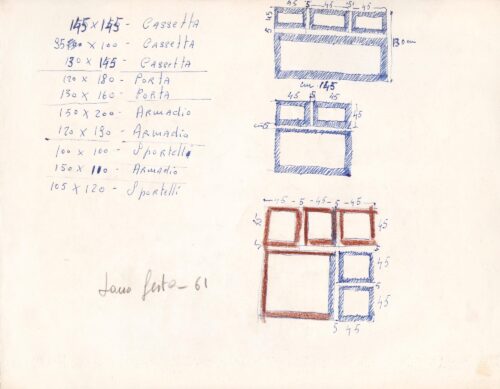 145 x 145 - Cassetta
x 100 - Cassetta
130 x 145 - Cassetta
120 x 180 - Porta
130 x 160 - Porta
150 x 200 - Armadio
120 x 190 - Armadio
100 x 100 - Sportelli
150 x 110 - Armadio
105 x 120 - Sportelli
61
45 5 45 5 45
45
5
130 cm
cm 145
45 5 45
45
45 - 5 - 45 - 5 - 45
45
45
5
45
5 45